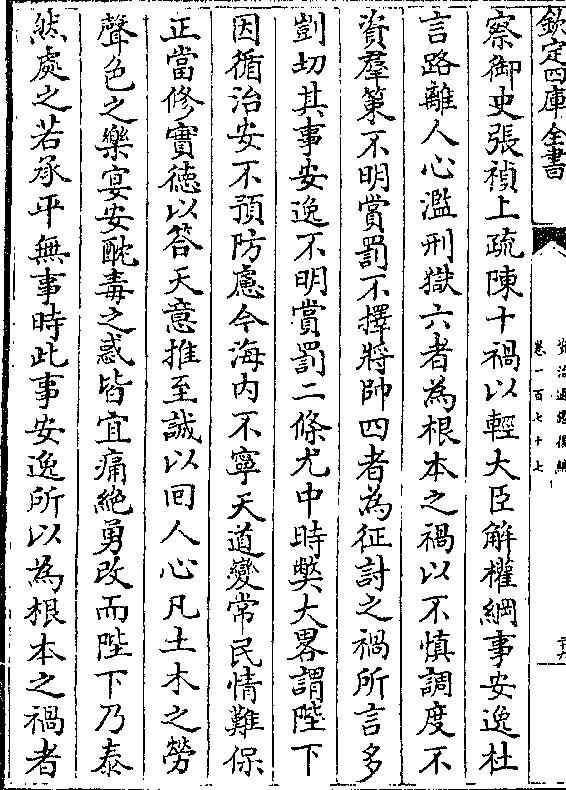 欽定四庫全書
資治通鑑後編
卷一百七十七
察御史張禎上疏陳十禍以輕大臣解權綱事安逸杜
言路離人心濫刑獄六者為根本之禍以不慎調度不
資羣策不明賞罰不擇將帥四者為征討之禍所言多
剴切其事安逸不明賞罰二條尤中時弊大畧謂陛下
因循治安不預防慮今海内不寧天道變常民情難保
正當修實徳以答天意推至誠以回人心凡土木之勞
聲色之樂宴安酖毒之惑皆宜痛絶勇改而陛下乃泰
然處之若承平無事時此事安逸所以為根本之禍者